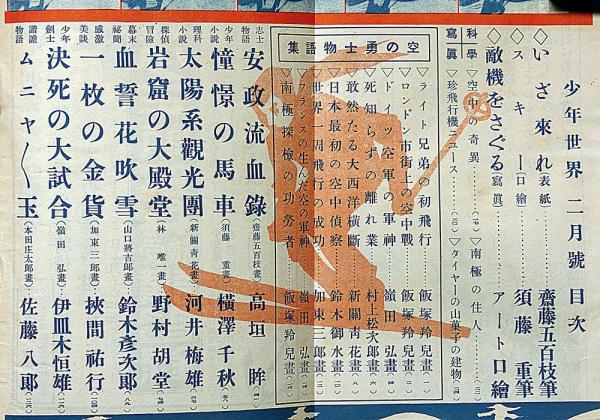 少年世界 二月號 目次
◇いざ來れ 表紙 齋藤五百枝筆
◇スキー 口繪 須藤重筆
◇敵機をさぐる 寫眞 アート口繪
科學寫眞
▽空中の奇異
▽南極の住人
▽珍飛行機ニュース
▽タイヤーの山菓子の建物
空の勇士物語集
▽ライト兄弟の初飛行 飯塚羚兒畫
▽ロンドン市街上の空中戰 飯塚羚兒畫
▽ドイツ空軍の軍神 嶺田弘畫
▽死知らずの離れ業 村上松次郎畫
▽敢然たる大西洋橫斷 新關靑花畫
▽日本最初の空中偵察 鈴木御水畫
▽世界一周飛行の成功 加東三郎畫
▽フランスの生んだ空の軍神 嶺田弘畫
▽南極探檢の功勞者 飯塚羚兒畫
志士物語 安政流血錄 (齋藤五百枝畫) 高垣眸
少年小說 憧憬の馬車 (須藤重畫) 橫澤千秋
理科小說 太陽系觀光團 (新關靑花畫) 河井梅雄
探偵冒險 岩窟の大殿堂 (林唯畫) 野村胡堂
幕末祕聞 血誓花吹雪 (山口將吉郎畫) 鈴木彥次郎
感激美談 一枚の金貨 (加東三郎畫) 挾間祐行
少年劍士 決死の大試合 (嶺田弘畫) 伊皿木恒雄
諧謔物語 ムニャ〱玉 (本田庄太郎畫) 佐藤八郞